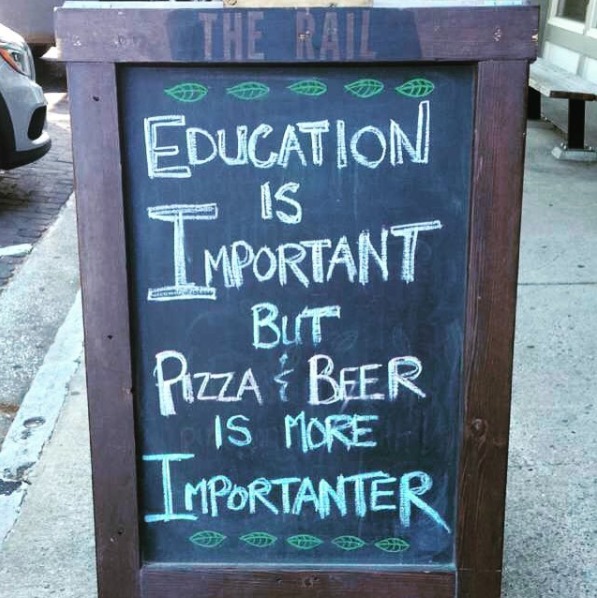 THE RAIL
EDUCATION
IS
IMPORTANT
BUT
PIZZA & BEER
IS MORE
IMPORTANTER